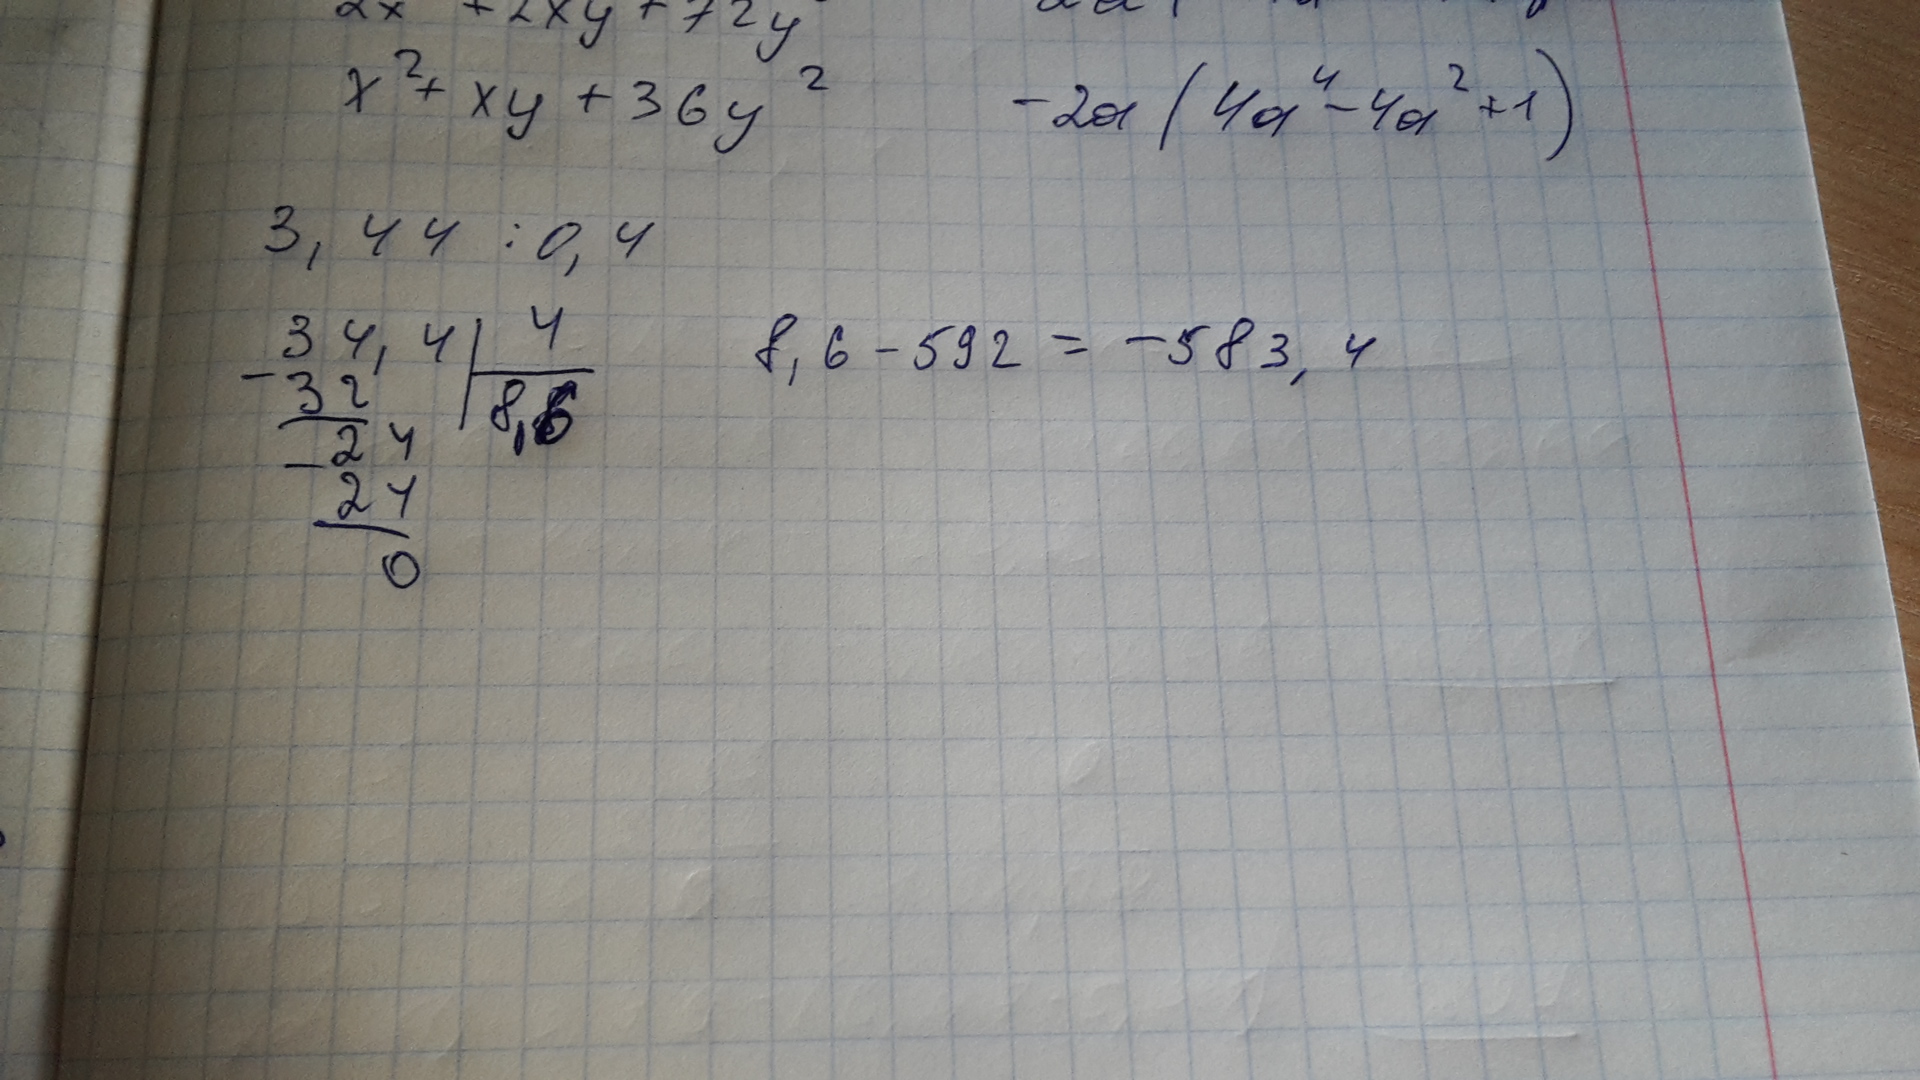 2x + 2xy + 72y
x² + xy + 36y²
-2a (4a⁴ - 4a² + 1)
3,44 : 0,4
34,4 | 4
- 32 | 8,6
- 24
24
0
8,6 - 592 = -583,4